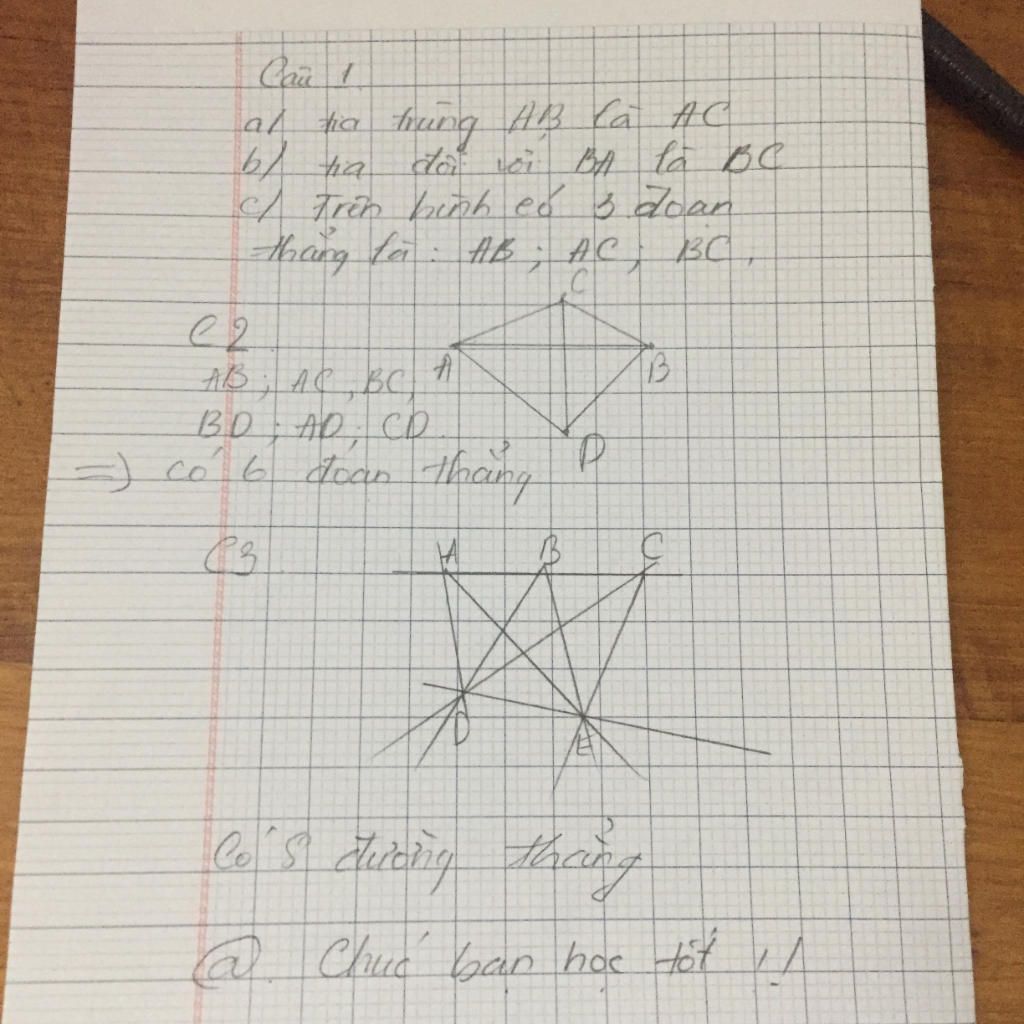 Câu 1
a) tia trùng AB là AC
b) tia đối với BA là BC
c) Trên hình có 3 đoạn
thẳng là: AB; AC; BC.
C
C2
A
B
AB; AC, BC,
BD; AD; CD.
D
=) có 6 đoạn thẳng
C3
A B C
D
E
Có 8 đường thẳng
@ Chúc bạn học tốt !!